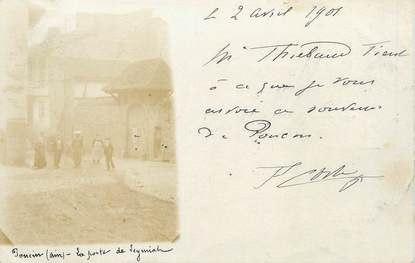 Le 2 avril 1901
Mr Thiébaud Tient
à ce que je vous
envoie ce souvenir
de Poncin.
Poncin (ain) - La porte de Leymiat